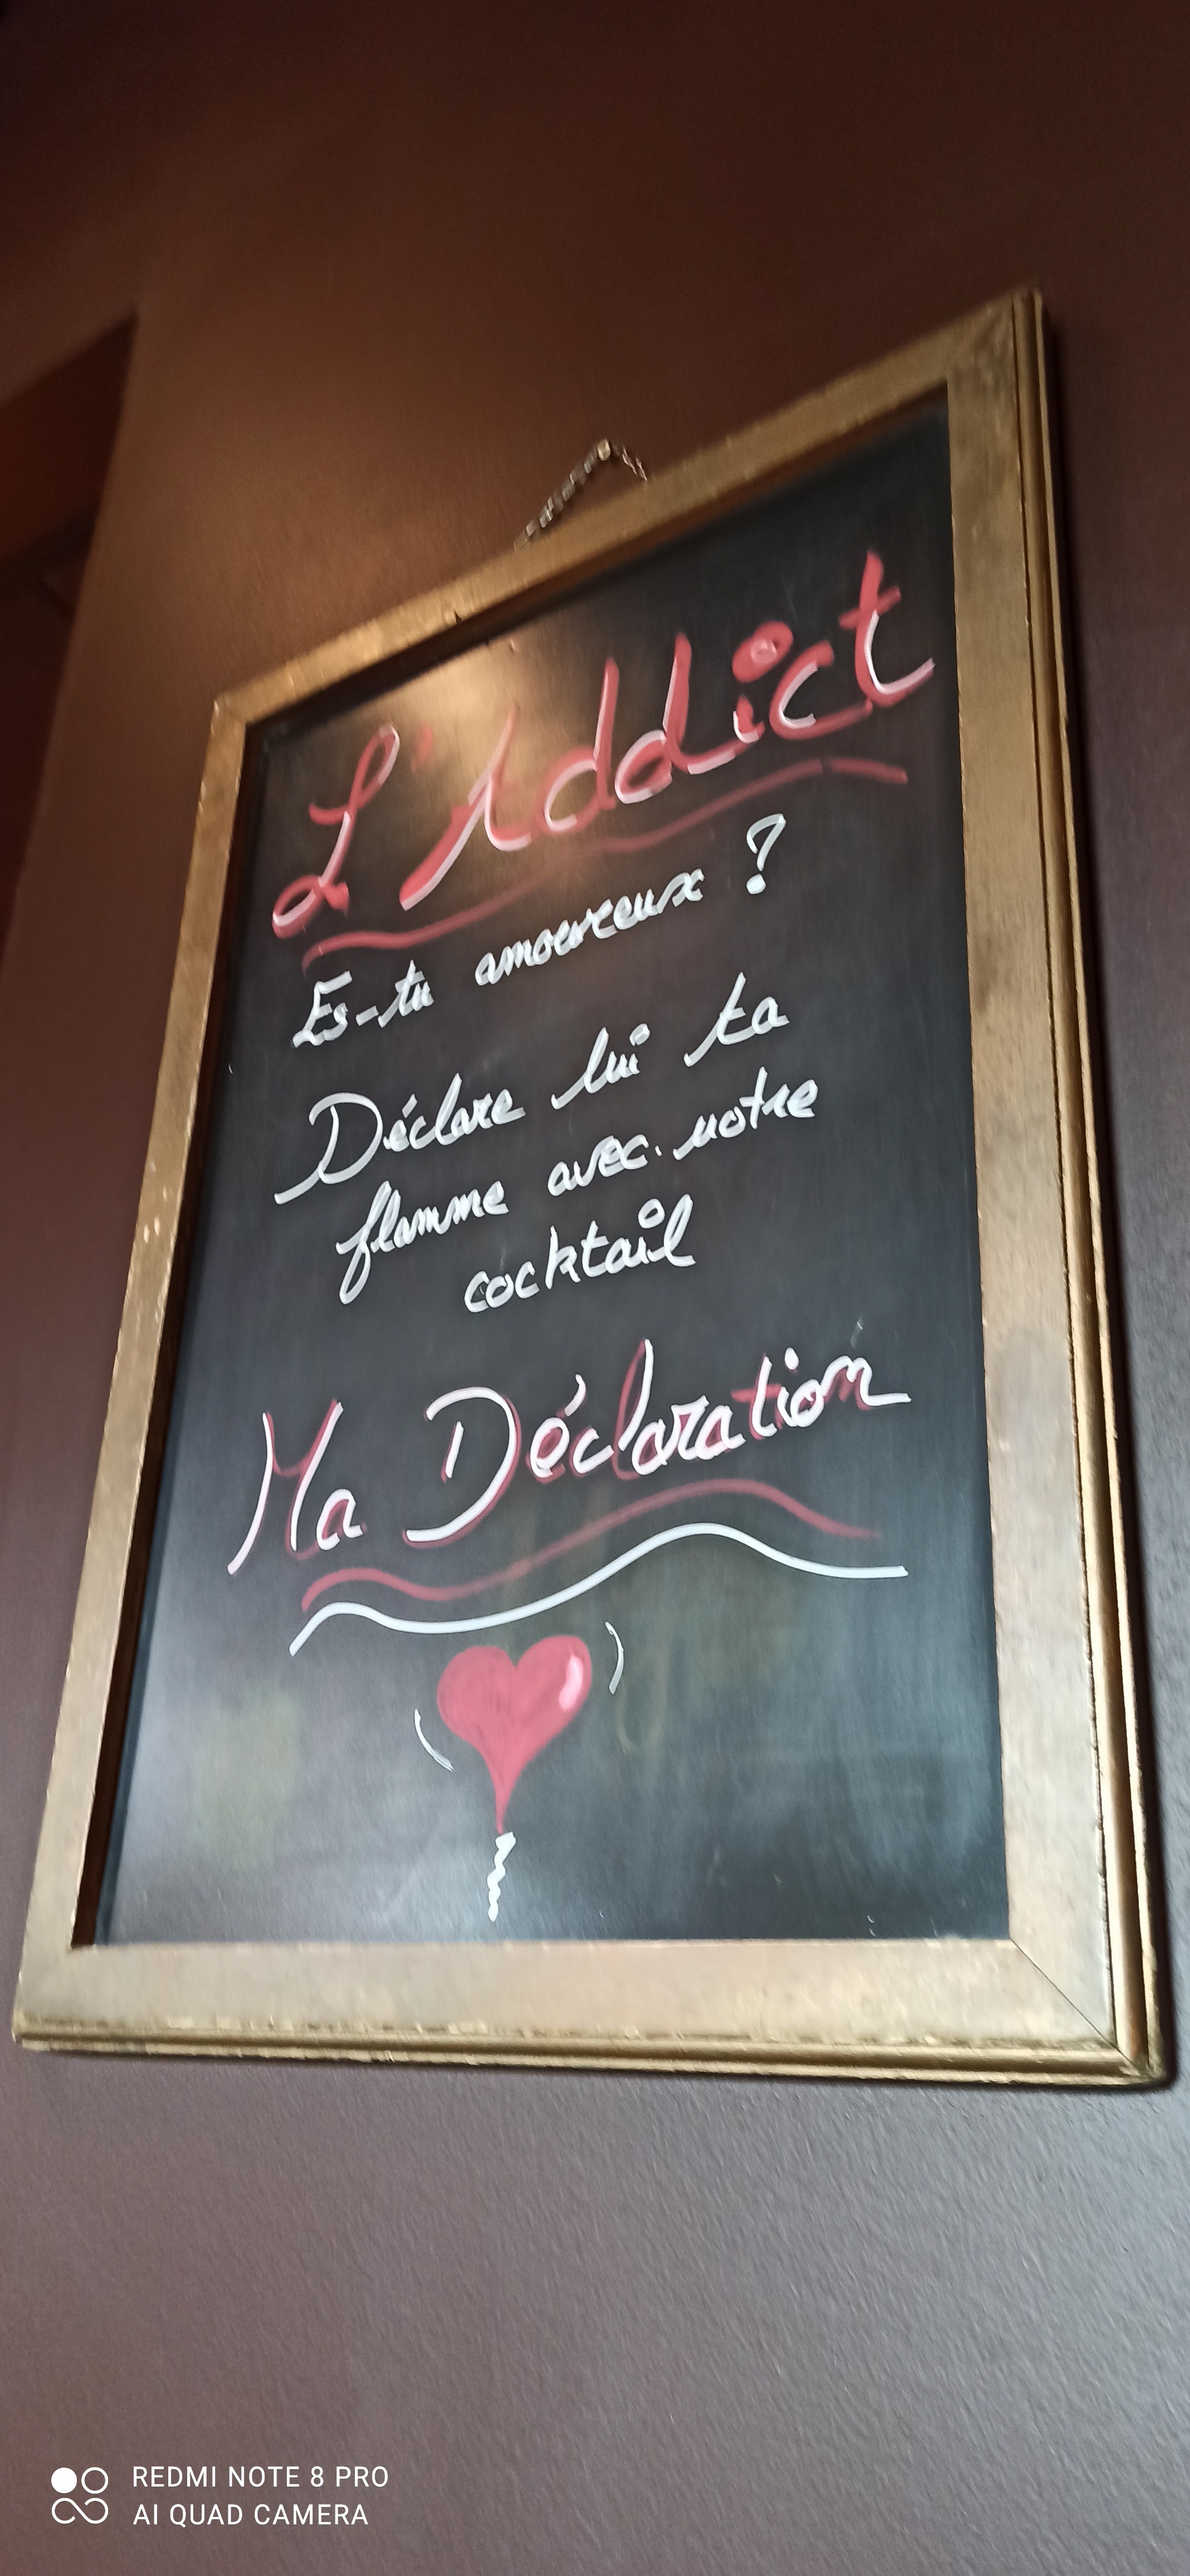 L'Addict
Es-tu amoureux ?
Déclare lui ta
flamme avec notre
cocktail
Ma Déclaration
REDMI NOTE 8 PRO
AI QUAD CAMERA